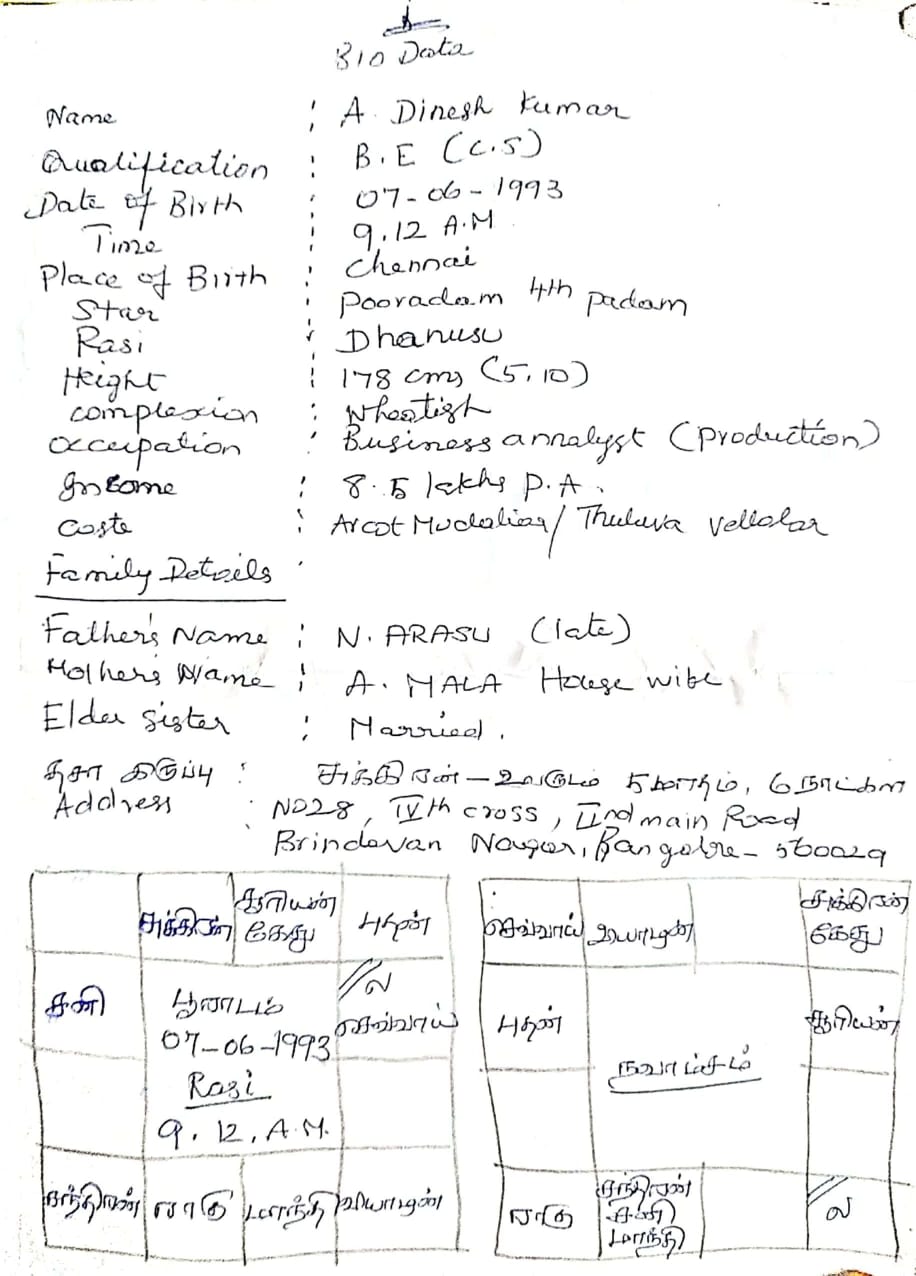 உ
Bio Data
Name : A. Dinesh Kumar
Qualification : B.E (C.S)
Date of Birth : 07-06-1993
Time : 9.12 A.M
Place of Birth : Chennai
Star : Pooradam 4th padam
Rasi : Dhanusu
Height : 178 cms (5.10)
Complexion : Wheatish
Occupation : Business annalyst (Production)
Income : 8.5 lakhs P.A.
Caste : Arcot Mudaliar/ Thuluva Vellalar
Family Details :
Father's Name : N. ARASU (late)
Mother's Name : A. MALA House wife
Elder Sister : Married.
தசா இருப்பு : சுக்கிரன் - 2 வருடம் 5 மாதம், 6 நாட்கள்
Address : NO28, IVth cross, IInd main Road
Brindavan Nagar, Bangalore - 560029
சுக்கிரன் சூரியன் கேது புதன்
சனி ல செவ்வாய்
பூராடம்
07-06-1993
Rasi
9.12, A.M.
சந்திரன் ராகு மாந்தி வியாழன்
செவ்வாய் வியாழன் சுக்கிரன் கேது
புதன் சூரியன்
நவாம்சம்
ராகு சந்திரன் சனி மாந்தி ல